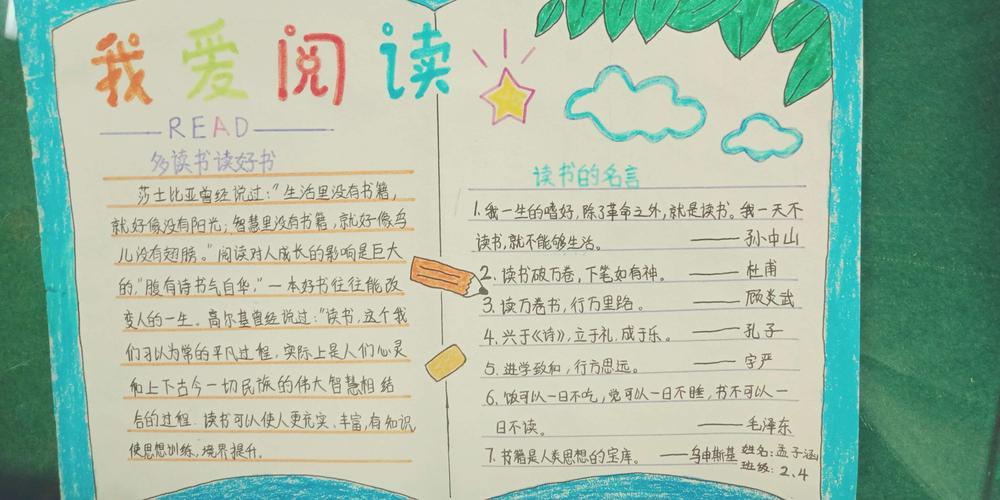 我爱阅读
READ
多读书读好书
莎士比亚曾经说过:"生活里没有书籍,
就好像没有阳光;智慧里没有书籍,就好像鸟
儿没有翅膀。"阅读对人成长的影响是巨大
的,"腹有诗书气自华,"一本好书往往能改
变人的一生。高尔基曾经说过:"读书,这个我
们习以为常的平凡过程,实际上是人们心灵
和上下古今一切民族的伟大智慧相结
合的过程.读书可以使人更充实、丰富,有知识
使思想训练,境界提升。
读书的名言
1.我一生的嗜好,除了革命之外,就是读书。我一天不
读书,就不能够生活。 ——孙中山
2.读书破万卷,下笔如有神。 ——杜甫
3.读万卷书,行万里路。 ——顾炎武
4.兴于《诗》,立于礼,成于乐。 ——孔子
5.进学致和,行方思远。 ——字严
6.饭可以一日不吃,觉可以一日不睡,书不可以一
日不读。 ——毛泽东
7.书籍是人类思想的宝库。 ——乌申斯基
姓名:孟子涵
班级:2、4